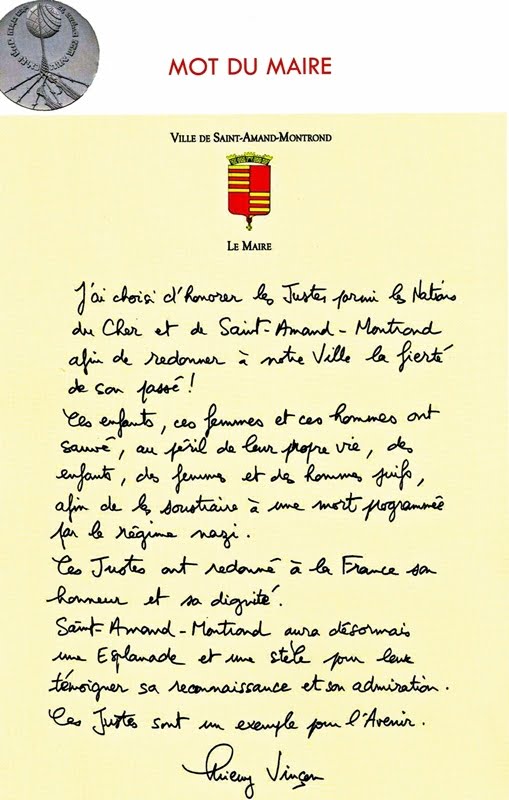 MOT DU MAIRE
VILLE DE SAINT-AMAND-MONTROND
LE MAIRE
J'ai choisi d'honorer les Justes parmi les Nations
du Cher et de Saint-Amand-Montrond
afin de redonner à notre Ville la fierté
de son passé !
Ces enfants, ces femmes et ces hommes ont
sauvé, au péril de leur propre vie, des
enfants, des femmes et des hommes juifs,
afin de les soustraire à une mort programmée
par le régime nazi.
Ces Justes ont redonné à la France son
honneur et sa dignité.
Saint-Amand-Montrond aura désormais
une Esplanade et une stèle pour leur
témoigner sa reconnaissance et son admiration.
Ces Justes sont un exemple pour l'Avenir.
Thierry Vinçon